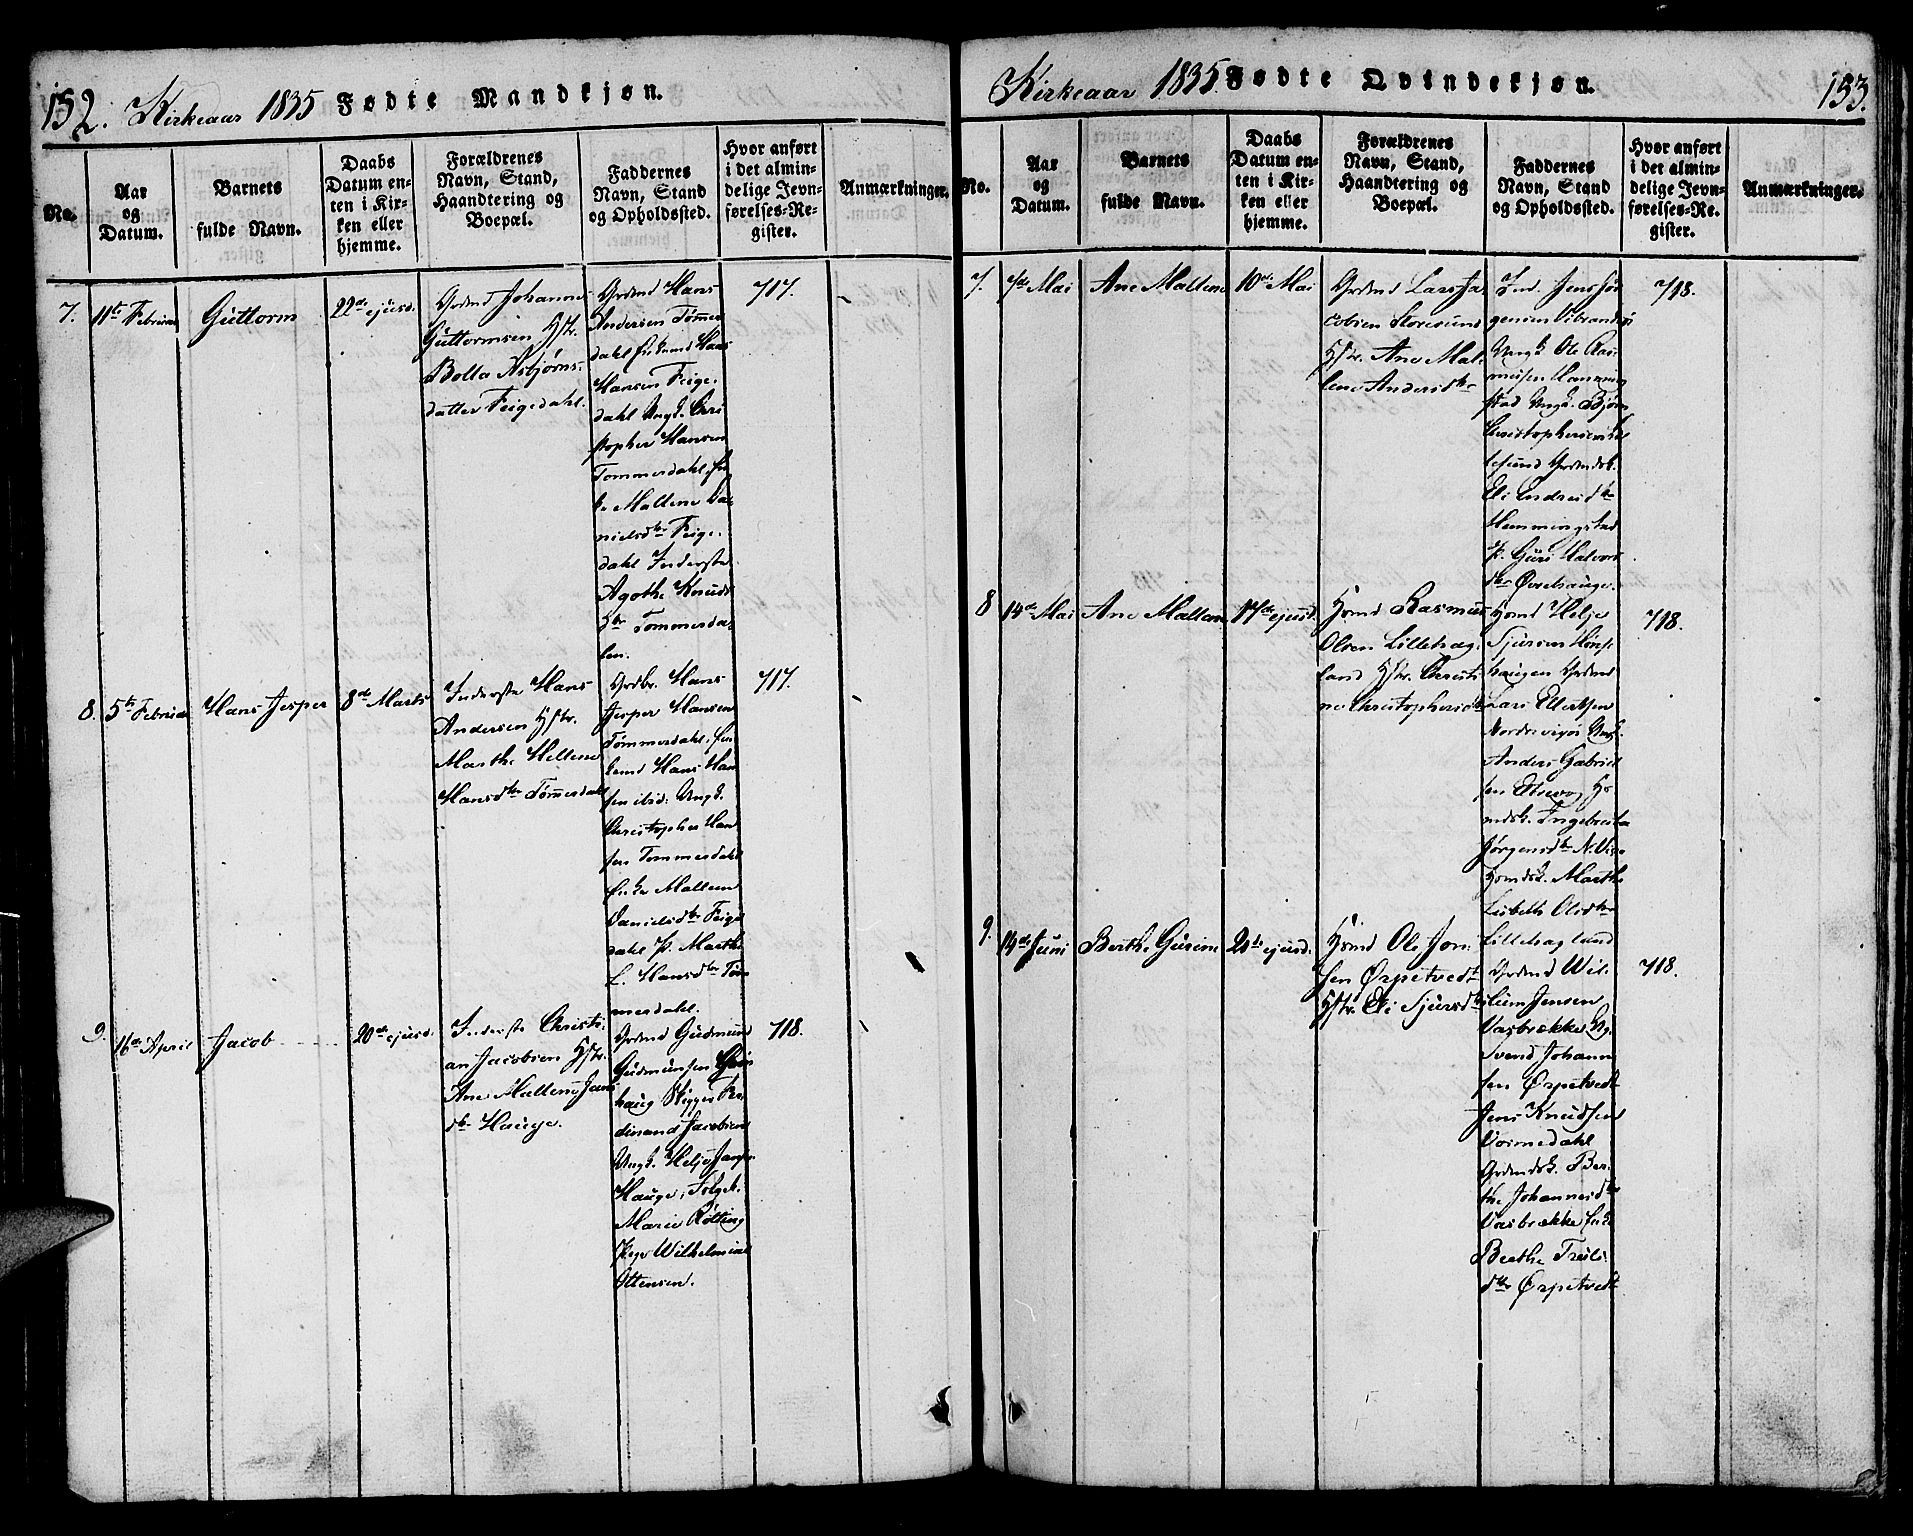 152. Kirkeaar 1835 Fødte Mandkjøn.
No.
Aar
og
Datum.
Barnets
fulde Navn.
Daabs
Datum en-
ten i Kir-
ken eller
hjemme.
Forældrenes
Navn, Stand,
Haandtering og
Boepæl.
Faddernes
Navn, Stand
og Opholdssted.
Hvor anført
i det almin-
delige Jevn-
førelses-Re-
gister.
Anmærkninger.
7.
11te Februar
Guttorm
22de ejusd.
Grdmd Johannes
Guttormsen Hstr.
Bolla Asbjørns-
datter Feigedahl.
Grdmd Hans
Andersen Tømer
dahl Hans
Hansen Feige-
dahl Ungk. Chri
stopher Hansen
Tommerdahl,
Mallene Da-
nielsdtr Feige-
dahl Inderste
Agothe Knuds
dtr Tommerda-
len.
717.
8.
5te Februar
Hans Jesper
8de Marts
Inderste Hans
Andersen Hstr.
Marthe Hellene
Hansdtr Tømerdahl
Grdbr. Hans
Jesper Hansen
Tømmerdahl,
Hans Han
sen ibid: Ungk.
Christopher Han
sen Tommerdahl
Mallene
Danielsdtr Feige
dahl P. Marthe
L. Hansdtr Tøm
merdahl.
717.
9.
16de April
Jacob
20de ejusd.
Inderste Christi-
an Jacobsen Hstr.
Ane Mallene Jans
dtr Hauge.
Grdmd Gudmund
Gudmunsen
haug Skipper Fer
dinand Jacobsen
Ungk. Helje Jansen
Hauge,
Marie Rølting
Pige Wilhelmine
Ottensen.
718.
Kirkeaar 1835 Fødte Qvindekjøn. 153.
No.
Aar
og
Datum.
Barnets
fulde Navn.
Daabs
Datum en-
ten i Kir-
ken eller
hjemme.
Forældrenes
Navn, Stand,
Haandtering og
Boepæl.
Faddernes
Navn, Stand
og Opholdssted.
Hvor anført
i det almin-
delige Jevn-
førelses-Re-
gister.
Anmærkninger.
7.
7de Mai
Ane Mallene
10de Mai
Grdmd Lars Ja
cobsen Storesund
Hstr. Ane Mal-
lene Andersdtr
Ind. Jens Jør
gensen Vibrandsø
Ungk. Ole Ras-
musen Hemming
stad Ungk. Bjørn
Christophersen
Grdmdsk.
Eli Endresdtr
Hemmingstad
P. Guri Halvors
dtr Øvrehauge.
718.
8
14de Mai
Ane Mallene
17de ejusd.
Hsmd Rasmus
Olsen Lillehag-
land Hstr. Christi
ne Christophersdtr
Hsmd Helje
Sjursen Hønse
haugen Grdmd
Lars Ellertsen
Nordrevigen Ungk.
Anders Gabriel
sen Hs
mdsk. Ingebreta
Jørgensdtr N. Vige
Hsmdsk. Marthe
Lisbeth Olsdtr
Lillehagland
718.
9.
14de Juni
Berthe Gurine
20de ejusd.
Hsmd Ole Jon-
sen Ørpetvedt
Hstr. Eli Sjursdtr
Grdmd Wil-
lum Jensen
Vasbrække Ung.
Svend Johann
sen Ørpetvedt
Jens Knudsen
Vormedahl
Grdmdsk. Ber-
the Johannesdtr
Vasbrække
Berthe Troels
dtr Ørpetvedt
718.